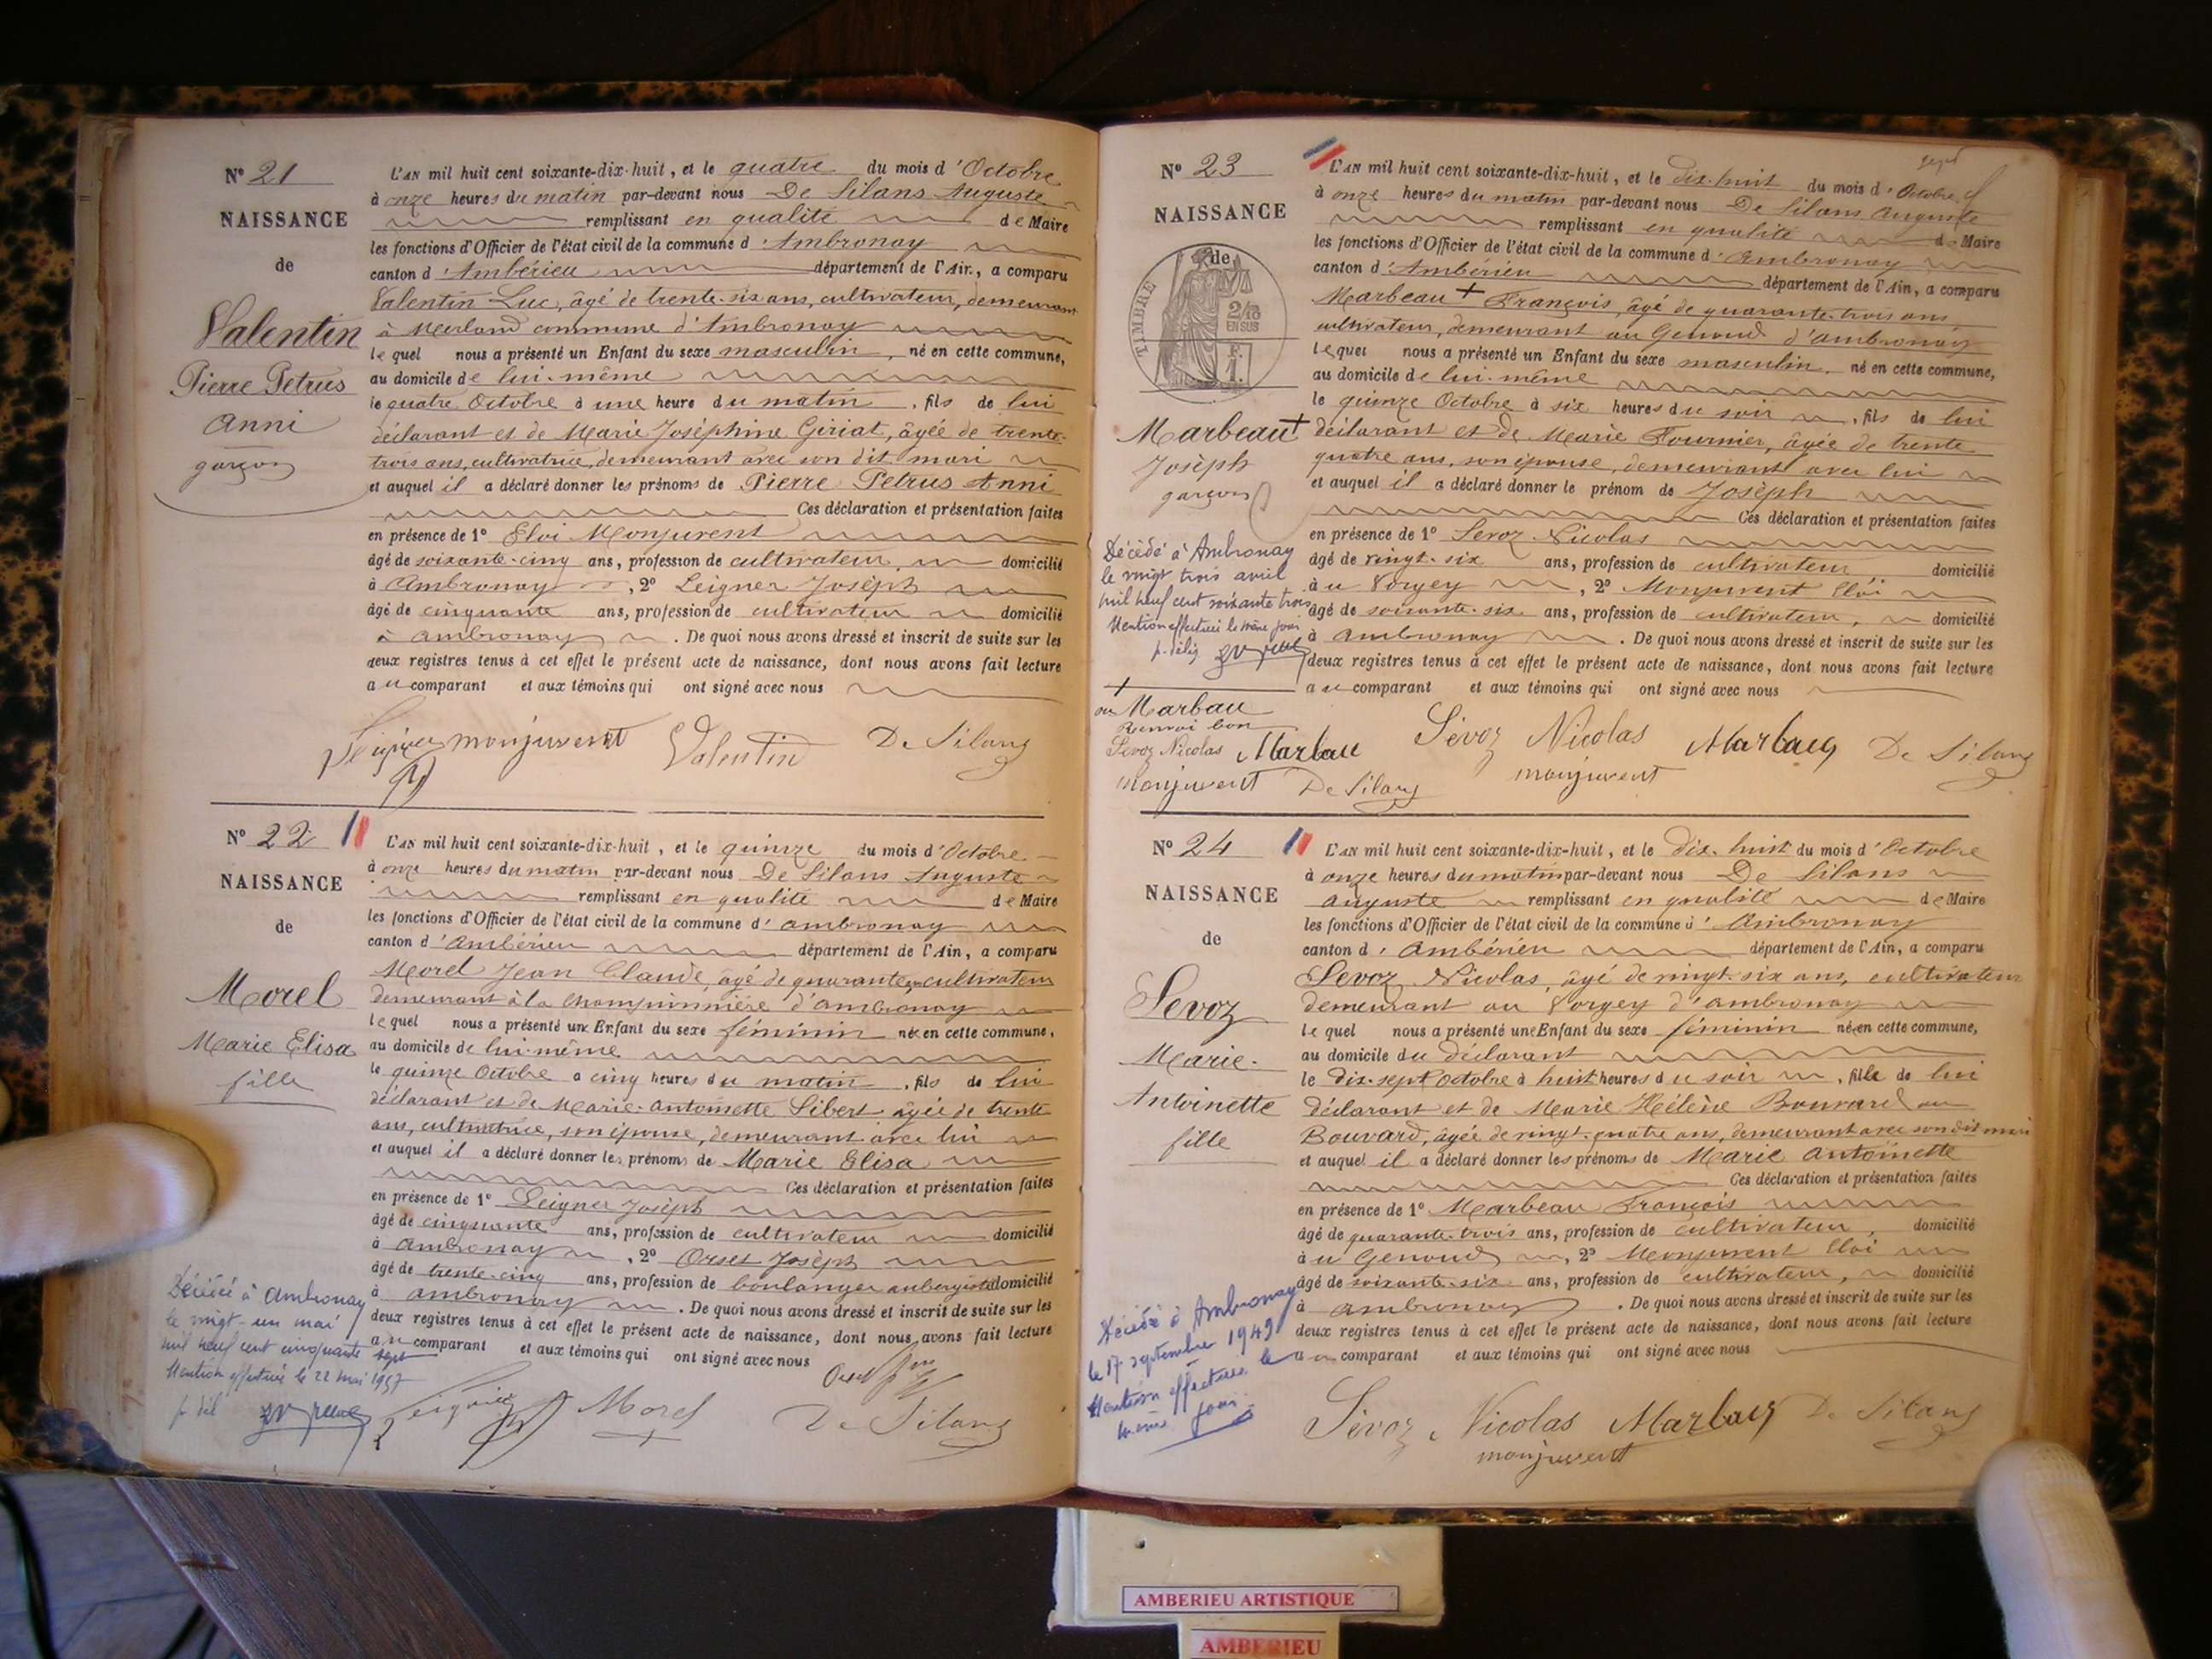 N° 21
NAISSANCE
de
Valentin
Pierre Petrus
Anni
garçon
L'AN mil huit cent soixante-dix-huit, et le quatre du mois d'Octobre
à onze heures du matin par-devant nous De Silans Auguste
remplissant en qualité de Maire
les fonctions d'Officier de l'état civil de la commune d'Ambronay
canton d'Ambérieu département de l'Ain, a comparu
Valentin Luc, âgé de trente-six ans, cultivateur, demeurant
à Merland commune d'Ambronay
lequel nous a présenté un Enfant du sexe masculin, né en cette commune,
au domicile de lui-même
le quatre Octobre à une heure du matin, fils de lui
déclarant et de Marie Joséphine Giriat, âgée de trente-
trois ans, cultivatrice, demeurant avec son dit mari
et auquel il a déclaré donner les prénoms de Pierre Petrus Anni
Ces déclaration et présentation faites
en présence de 1° Eloi Monjuvent
âgé de soixante-cinq ans, profession de cultivateur, domicilié
à Ambronay, 2° Leigner Joseph
âgé de cinquante ans, profession de cultivateur domicilié
à Ambronay. De quoi nous avons dressé et inscrit de suite sur les
deux registres tenus à cet effet le présent acte de naissance, dont nous avons fait lecture
au comparant et aux témoins qui ont signé avec nous
monjuvent Valentin De Silans
N° 22
NAISSANCE
de
Morel
Marie Elisa
fille
L'AN mil huit cent soixante-dix-huit, et le quinze du mois d'Octobre
à onze heures du matin par-devant nous De Silans Auguste
remplissant en qualité de Maire
les fonctions d'Officier de l'état civil de la commune d'Ambronay
canton d'Ambérieu département de l'Ain, a comparu
Morel Jean Claude, âgé de quarante ans cultivateur
demeurant à la Championnière d'Ambronay
lequel nous a présenté une Enfant du sexe féminin née en cette commune,
au domicile de lui-même
le quinze Octobre à cinq heures du matin, fils de lui
déclarant et de Marie-Antoinette Sibert âgée de trente
ans, cultivatrice, son épouse, demeurant avec lui
et auquel il a déclaré donner les prénoms de Marie Elisa
Ces déclaration et présentation faites
en présence de 1° Leigner Joseph
âgé de cinquante ans, profession de cultivateur domicilié
à Ambronay, 2° Orset Joseph
âgé de trente-cinq ans, profession de boulanger aubergiste domicilié
à Ambronay. De quoi nous avons dressé et inscrit de suite sur les
deux registres tenus à cet effet le présent acte de naissance, dont nous avons fait lecture
au comparant et aux témoins qui ont signé avec nous
Décédée à Ambronay
le vingt-un mai
mil neuf cent cinquante
sept
Mention effectuée le 22 mai 1957
p. dél
Orset
Morel De Silans
N° 23
NAISSANCE
de
TIMBRE
2/10
EN SUS
F.
1.
Marbeau+
Joseph
garçon
Décédé à Ambronay
le vingt trois avril
mil neuf cent soixante trois
Mention effectuée le même jour
p. délég
+
ou Marbau
Renvoi bon
Sevoz Nicolas Marbau
monjuvent De Silans
sept
L'AN mil huit cent soixante-dix-huit, et le dix-huit du mois d'Octobre
à onze heures du matin par-devant nous De Silans Auguste
remplissant en qualité de Maire
les fonctions d'Officier de l'état civil de la commune d'Ambronay
canton d'Ambérieu département de l'Ain, a comparu
Marbeau+ François, âgé de quarante-trois ans
cultivateur, demeurant au Genoud d'Ambronay
lequel nous a présenté un Enfant du sexe masculin, né en cette commune,
au domicile de lui-même
le quinze Octobre à six heures du soir, fils de lui
déclarant et de Marie Fournier, âgée de trente
quatre ans, son épouse, demeurant avec lui
et auquel il a déclaré donner le prénom de Joseph
Ces déclaration et présentation faites
en présence de 1° Sevoz Nicolas
âgé de vingt-six ans, profession de cultivateur domicilié
au Vorgey, 2° Monjuvent Eloi
âgé de soixante-six ans, profession de cultivateur, domicilié
à Ambronay. De quoi nous avons dressé et inscrit de suite sur les
deux registres tenus à cet effet le présent acte de naissance, dont nous avons fait lecture
au comparant et aux témoins qui ont signé avec nous
Sévoz Nicolas Marbau De Silans
monjuvent
N° 24
NAISSANCE
de
Sevoz
Marie-
Antoinette
fille
L'AN mil huit cent soixante-dix-huit, et le dix-huit du mois d'Octobre
à onze heures du matin par-devant nous De Silans
Auguste remplissant en qualité de Maire
les fonctions d'Officier de l'état civil de la commune d'Ambronay
canton d'Ambérieu département de l'Ain, a comparu
Sevoz Nicolas, âgé de vingt-six ans, cultivateur
demeurant au Vorgey d'Ambronay
lequel nous a présenté une Enfant du sexe féminin née en cette commune,
au domicile du déclarant
le dix-sept Octobre à huit heures du soir, fille de lui
déclarant et de Marie Hélène Bouvard ou
Bouvard, âgée de vingt-quatre ans, demeurant avec son dit mari
et auquel il a déclaré donner les prénoms de Marie Antoinette
Ces déclaration et présentation faites
en présence de 1° Marbeau François
âgé de quarante-trois ans, profession de cultivateur, domicilié
au Genoud, 2° Monjuvent Eloi
âgé de soixante-six ans, profession de cultivateur, domicilié
à Ambronay. De quoi nous avons dressé et inscrit de suite sur les
deux registres tenus à cet effet le présent acte de naissance, dont nous avons fait lecture
au comparant et aux témoins qui ont signé avec nous
Décédée à Ambronay
le 17 septembre 1949
Mention effectuée le
même jour
Sévoz Nicolas Marbau De Silans
monjuvent
AMBERIEU ARTISTIQUE
AMBERIEU